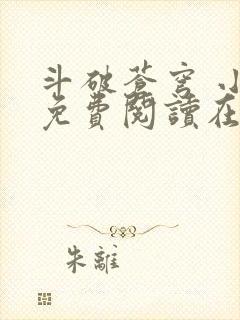 斗破蒼穹 小
免費閱讀在
朱離